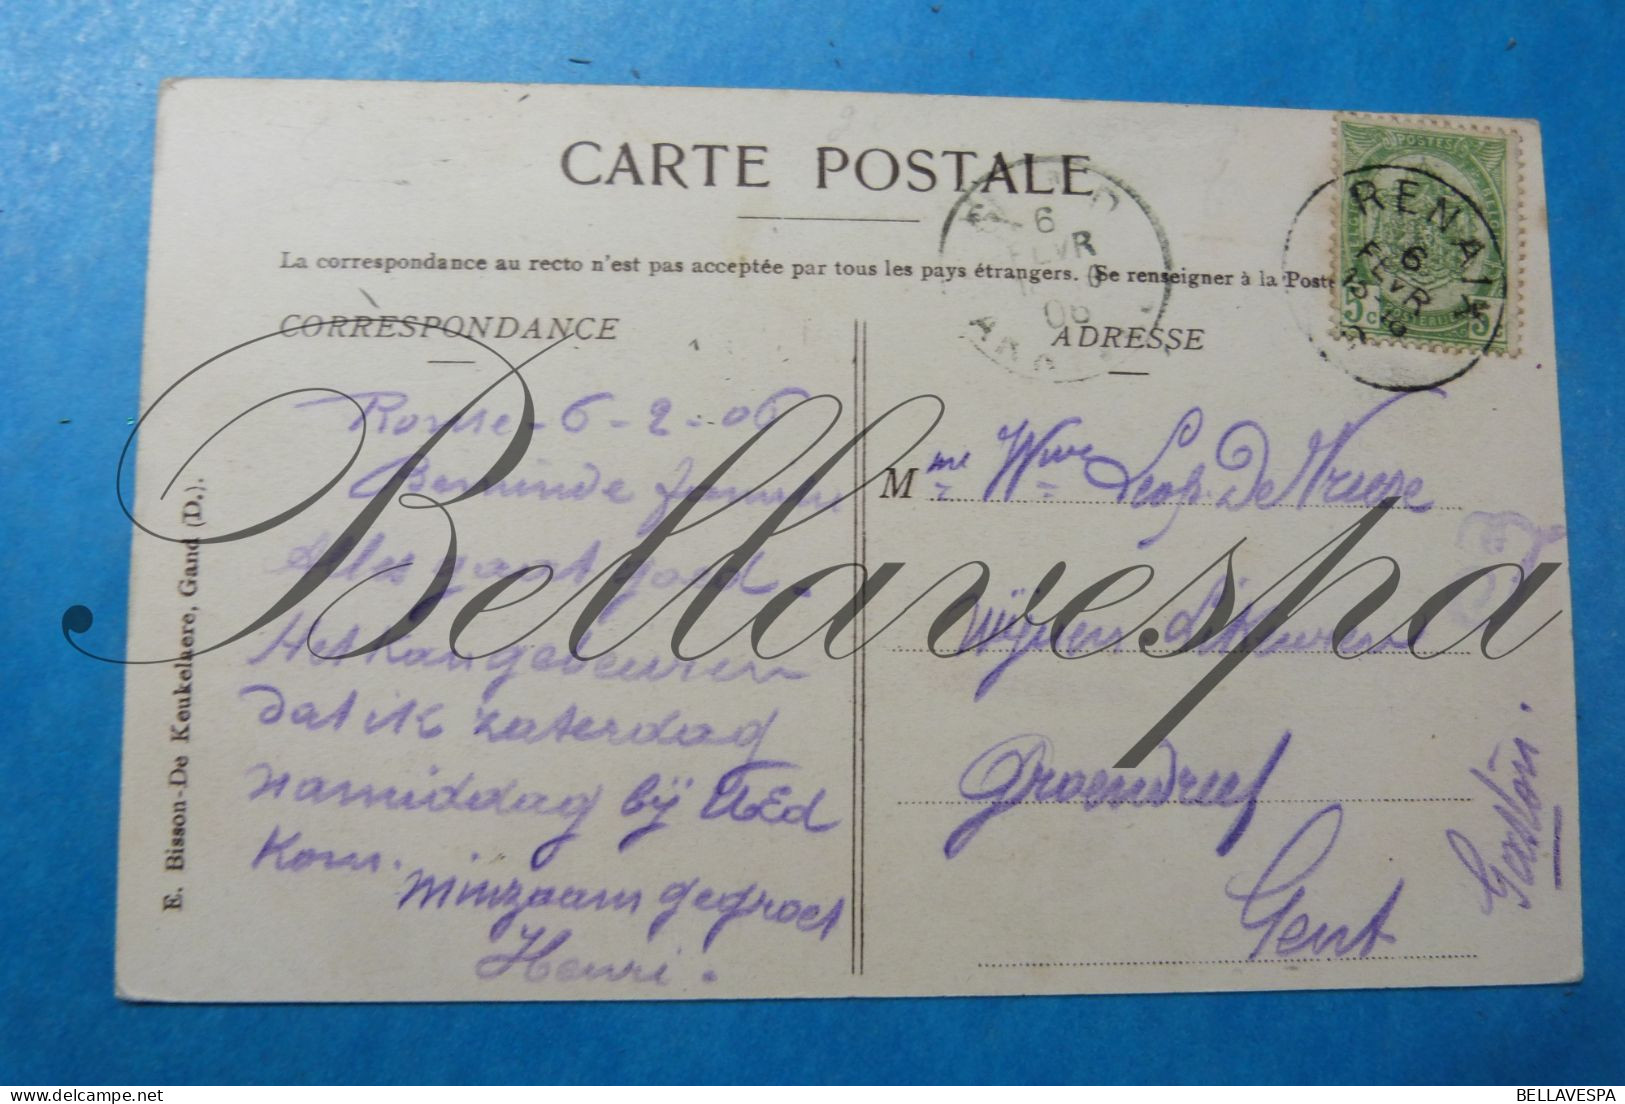 CARTE POSTALE
La correspondance au recto n'est pas acceptée par tous les pays étrangers. (Se renseigner à la Poste
CORRESPONDANCE
ADRESSE
POSTES
5 c 5 c
RENAIX
6
FEVR
6
FEVR
06
Ronse - 6 - 2 - 06
Beminde
Alles gaat goed.
Het kan gebeuren
dat ik zaterdag
namiddag bij UEd
kom.
Minzaam gegroet
Henri.
Mme Wwe Leop. De Vriese
Wijnen Likeuren
Groendreef
Gent
Gaston.
E. Bisson-De Keukelaere, Gand (D.).
Bellavespa
BELLAVESPA